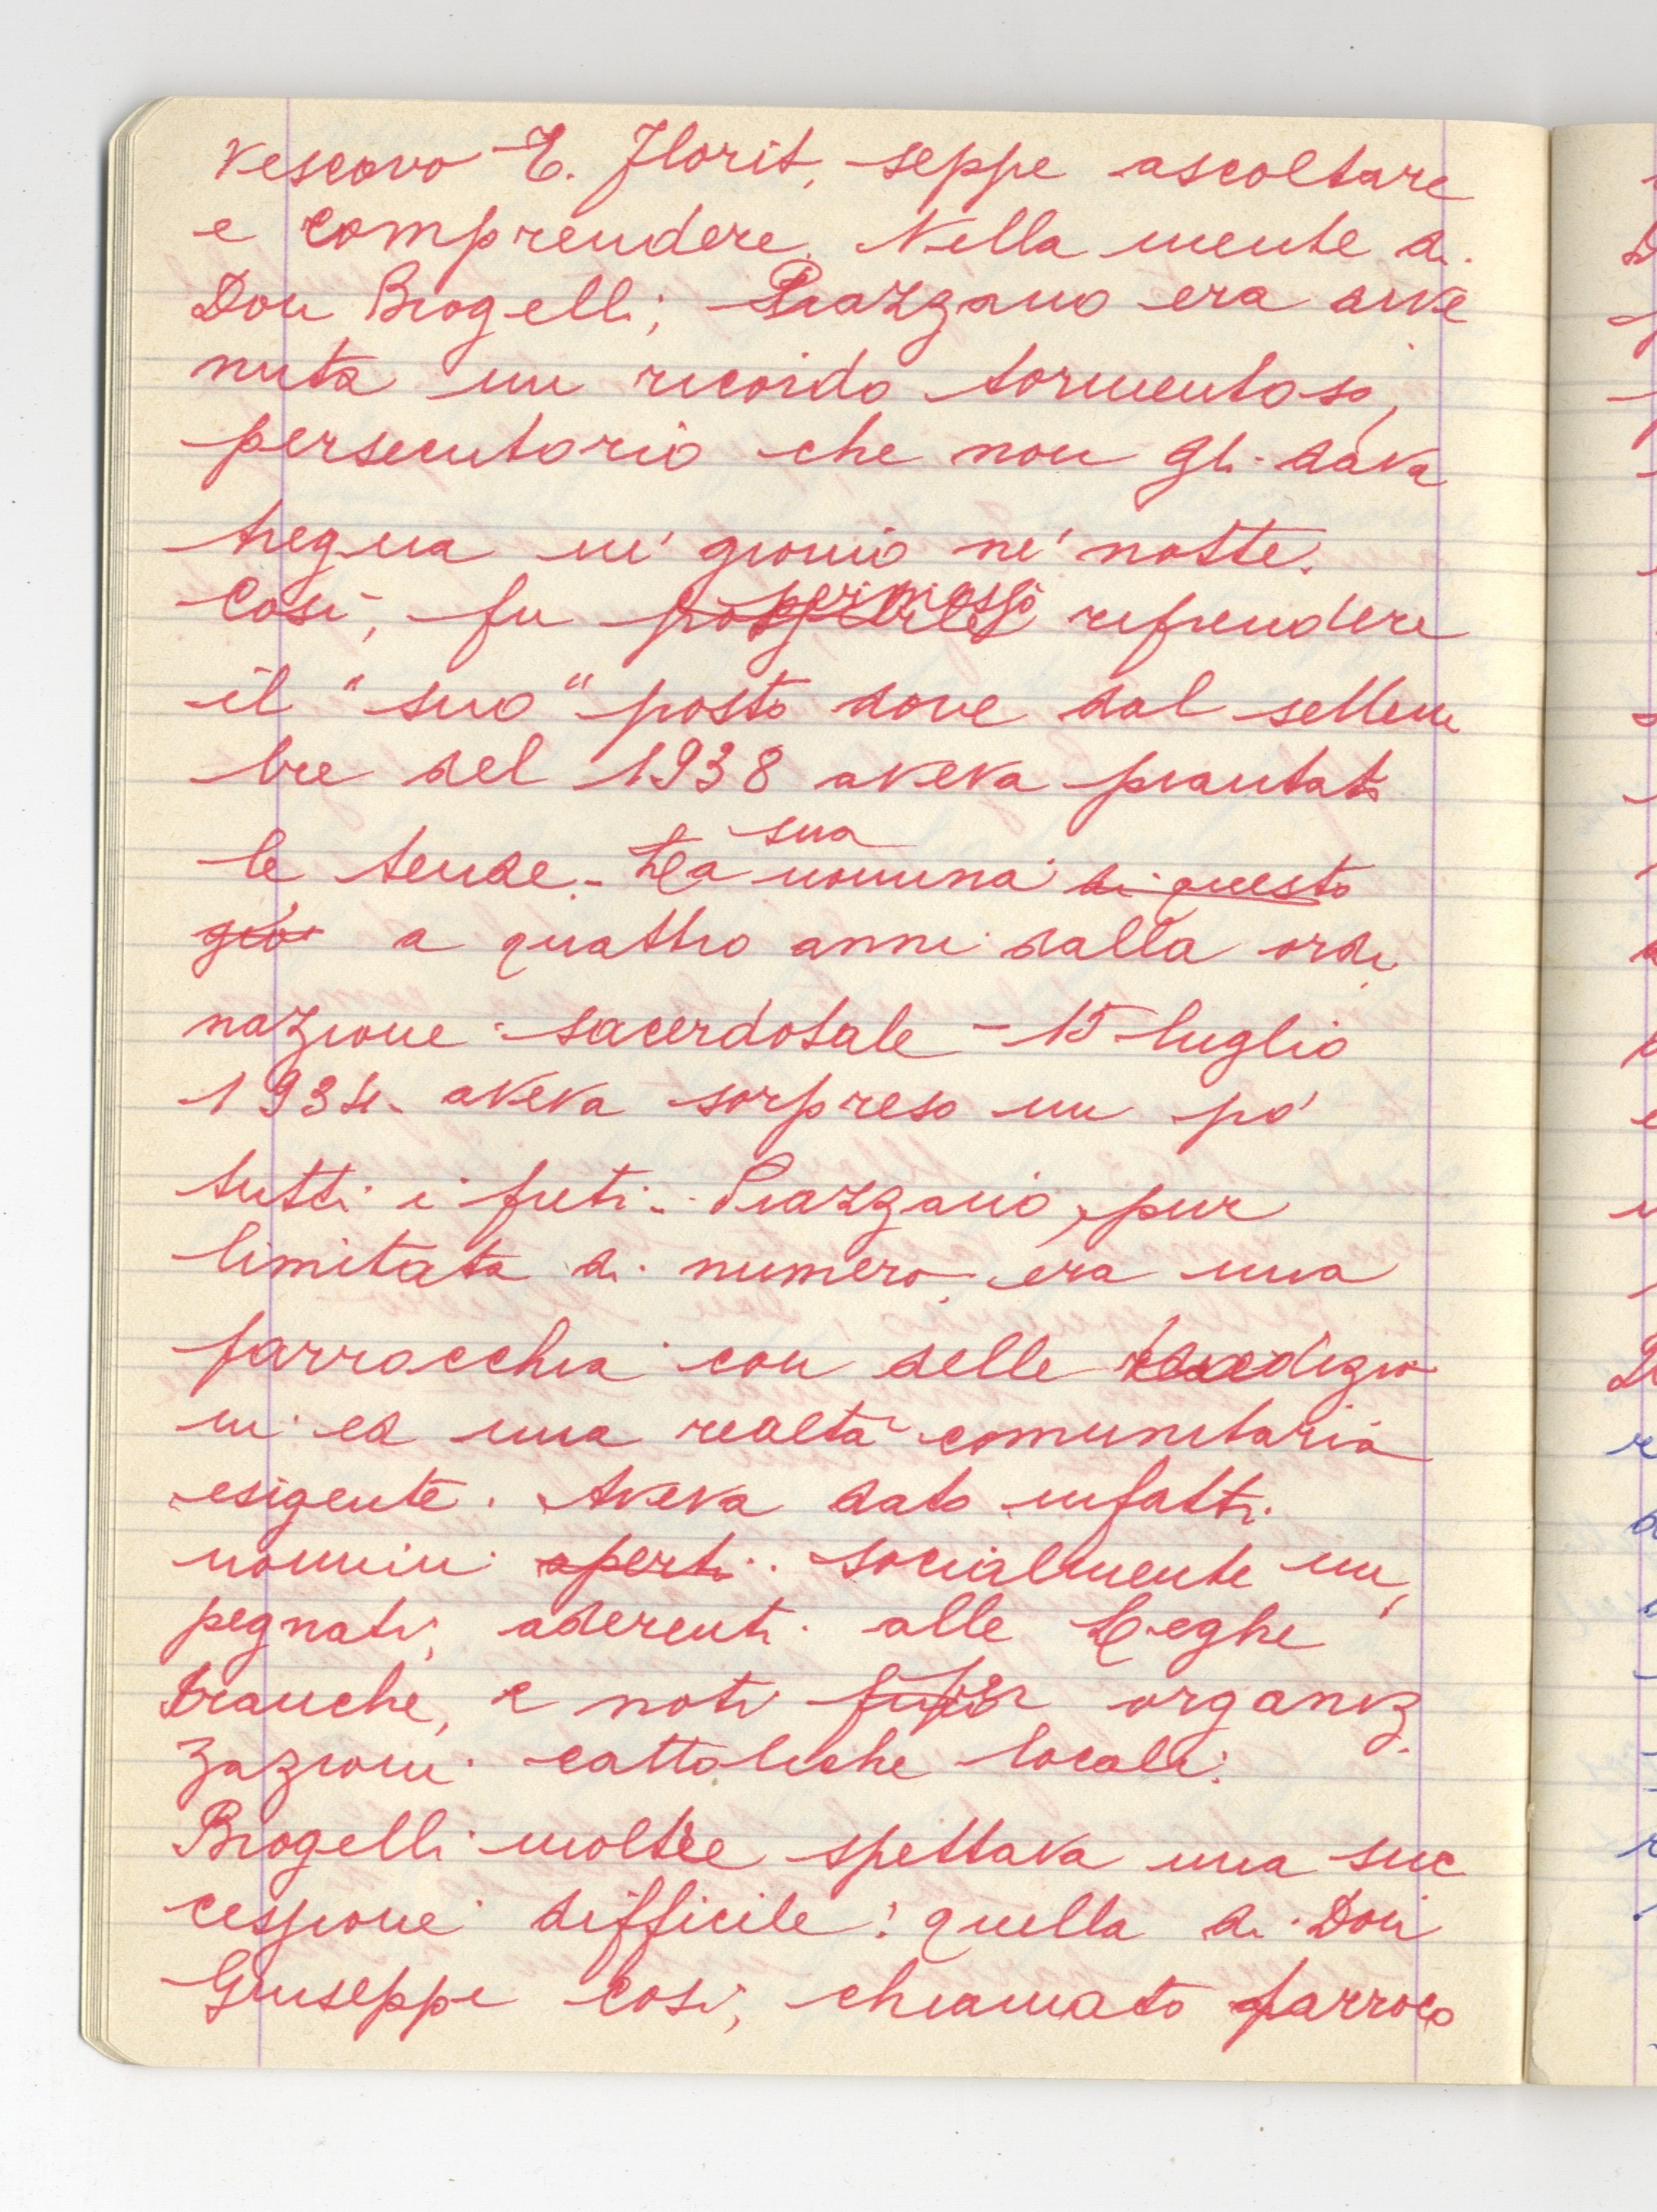 Vescovo E. Florit, seppe ascoltare
e comprendere. Nella mente di
Don Biogelli, Piazzano era dive
nuta un ricordo tormentoso,
persecutorio che non gli dava
tregua né giorno né notte.
Così, fu permesso riprendere
il "suo" posto dove dal settem
bre del 1938 aveva piantato
le tende. La sua nomina di questo
già a quattro anni dalla ordi
nazione sacerdotale - 15 luglio
1934 - aveva sorpreso un pò
tutti i preti. Piazzano, pur
limitata di numero, era una
parrocchia con delle tradizio
ni ed una realtà comunitaria
esigente. Aveva dato infatti
uomini aperti socialmente im
pegnati, aderenti alle Leghe
bianche, e noti organiz
zazioni cattoliche locali.
Biogelli inoltre spettava una suc
cessione difficile: quella di Don
Giuseppe Cosi, chiamato parroco